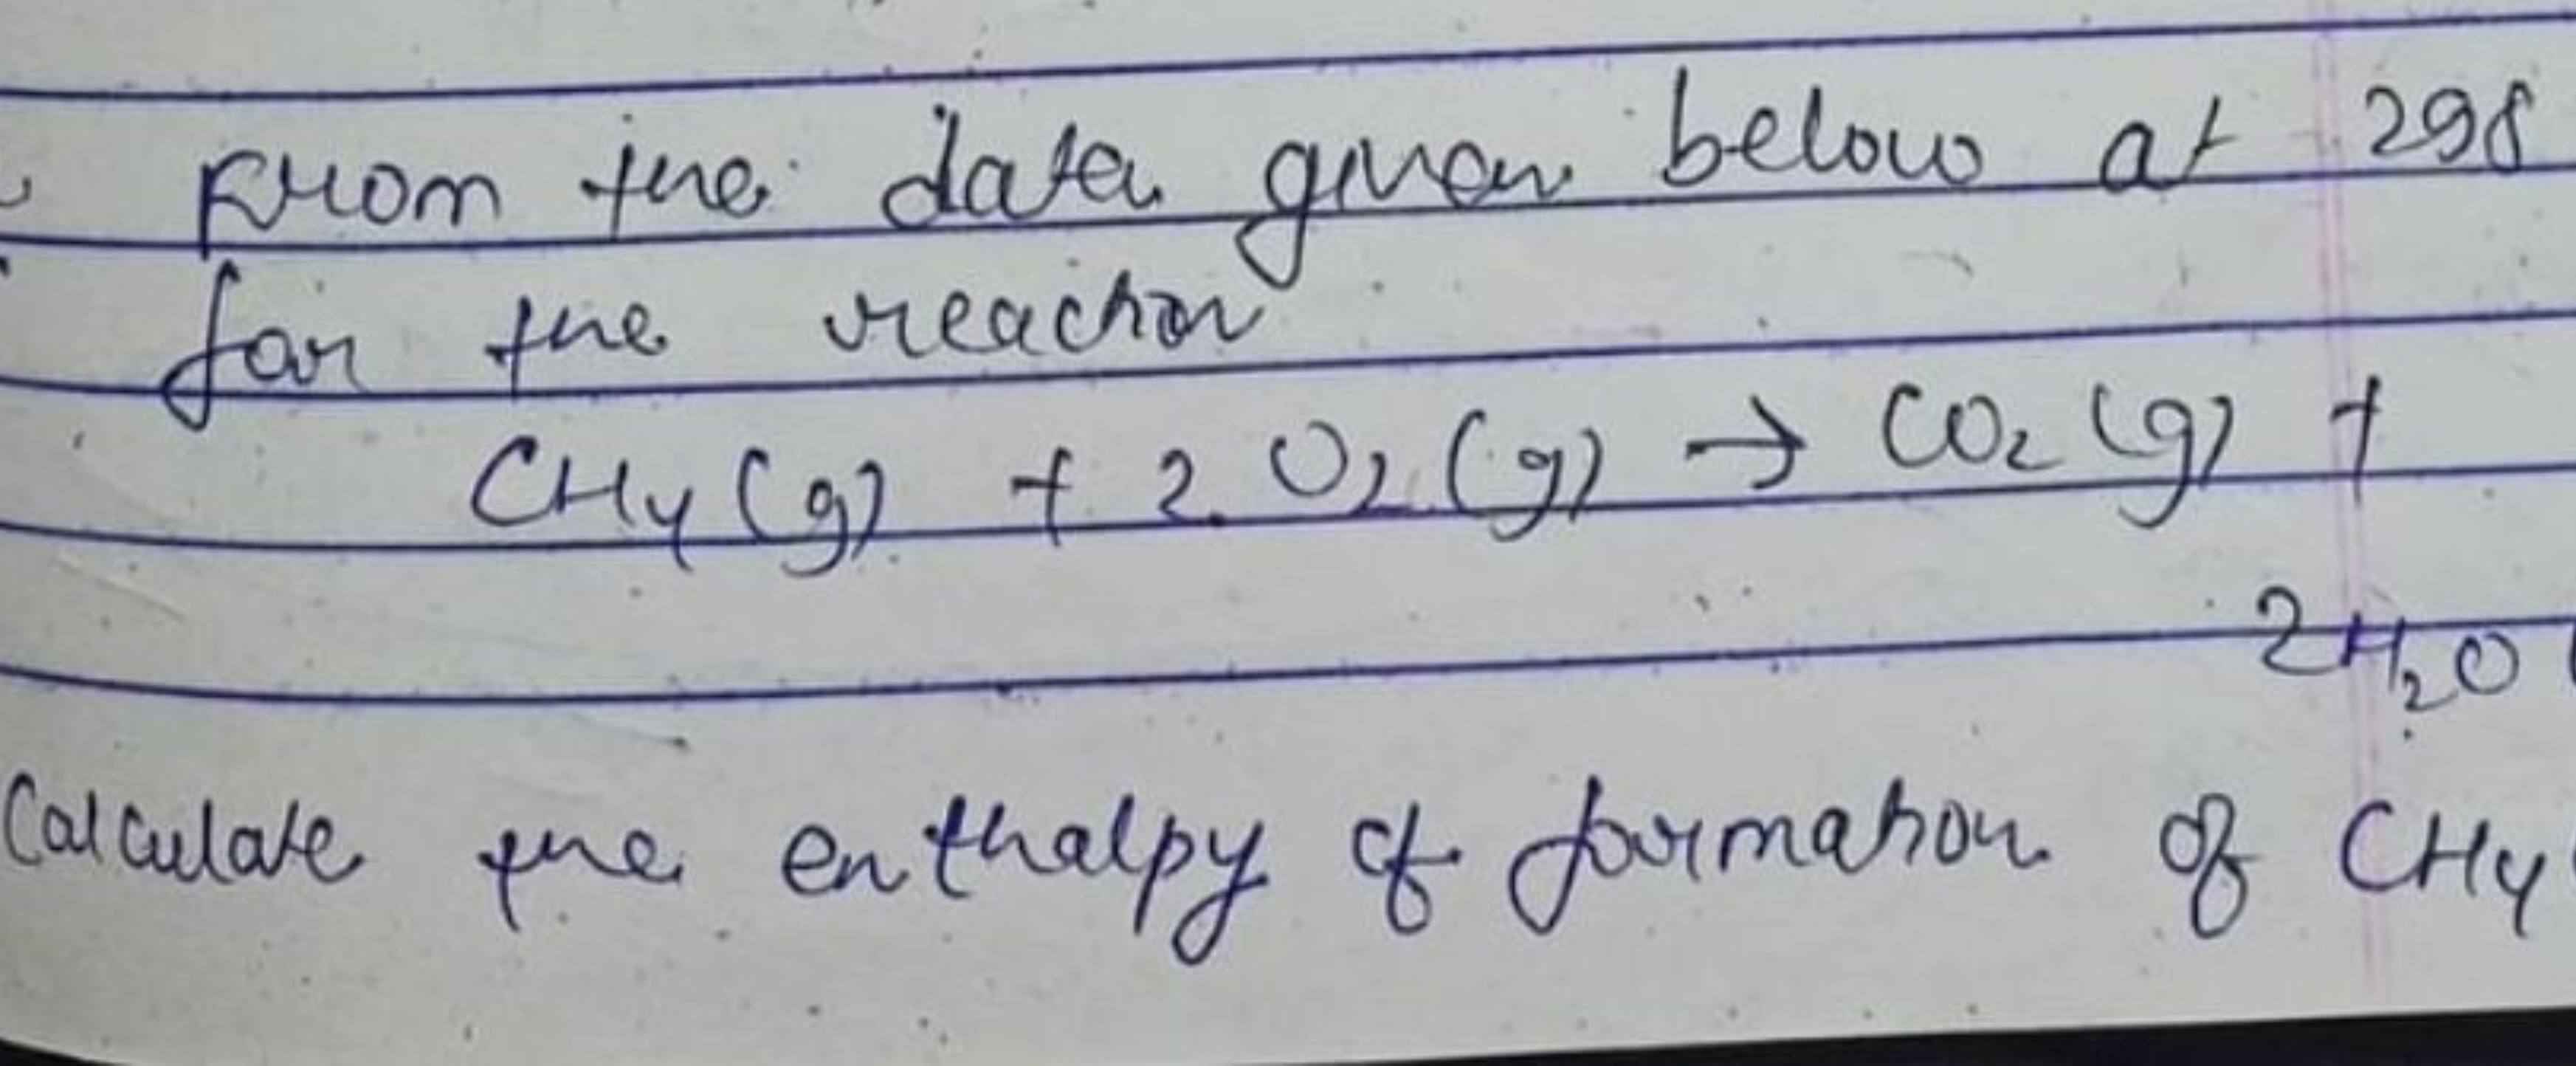 From the data given below at 298
for the reaction
CH4 (g) + 2 O2 (g) → CO2 (g) +
2H2O (
Calculate the enthalpy of formation of CH4 (